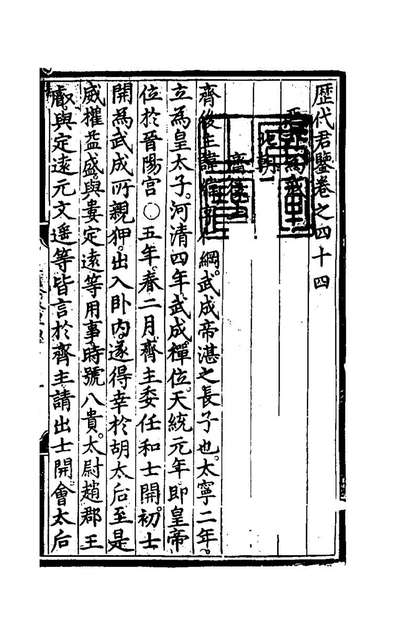 歷代君鑒卷之四十四
惡可為戒
北朝
齊後主
齊後主諱緯字仁綱。武成帝湛之長子也。太寧二年。
立為皇太子。河清四年。武成禪位。天統元年即皇帝
位於晉陽宮○五年。春二月。齊主委任和士開。初士
開為武成所親狎。出入卧內。遂得幸於胡太后。至是
威權益盛。與婁定遠等用事。時號八貴。太尉趙郡王
叡與定遠元文遙等皆言於齊主請出士開會太后